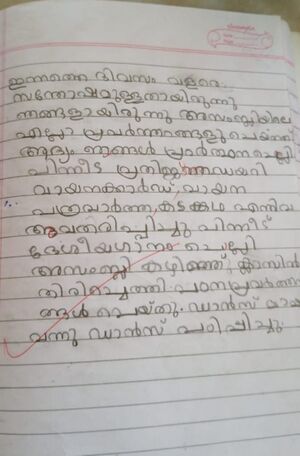 ഇന്നത്തെ ദിവസം വളരെ
സന്തോഷമുള്ളതായിരുന്നു
ഞങ്ങളായിരുന്നു അസംബ്ലിയിലെ
എല്ലാ പ്രവർത്തനങ്ങളുചെയ്തത്
ആദ്യം ഞങ്ങൾ പ്രാർത്ഥനചൊല്ലി
പിന്നീട് പ്രതിജ്ഞ ഡയറി
വായനക്കാർഡ്, വായന
പത്രവാർത്ത, കടങ്കഥ എന്നിവ
അവതരിപ്പിച്ചു പിന്നീട്
ദേശീയഗാനം ചൊല്ലി
അസംബ്ലി കഴിഞ്ഞ് ക്ലാസിൽ
തിരിച്ചെത്തി പഠനപ്രവർത്ത
ങ്ങൾ ചെയ്തു. ഡാൻസ്
വന്നു ഡാൻസ് പഠിപ്പിച്ചു.